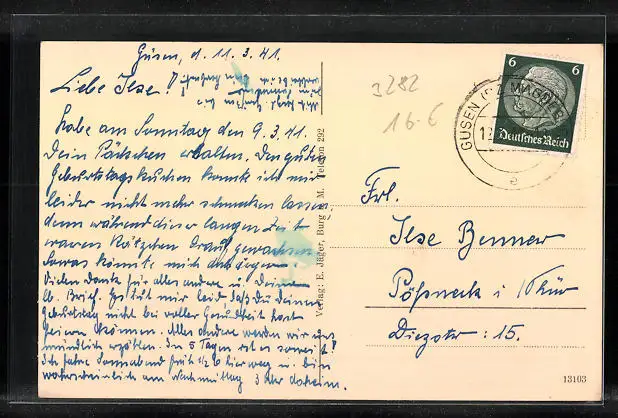 Güsen, d. 11.3.41.
Liebe Ilse!
habe am Sonntag den 9.3.41.
Dein Päckchen erhalten. Den guten
Geburtstagskuchen konnte ich mir
leider nicht mehr schmecken lassen,
denn während dieser langen Zeit
waren Kätzchen drauf gewachsen
Sowas könnte mich aufregen.
Vielen Dank für alles andere u. Deinen
lb. Brief. Es tut mir leid daß Du Deinen
Geburtstag nicht bei voller Gesundheit hast
feiern können. Alles andere werden wir uns
mündlich erzählen. In 5 Tagen ist es soweit!
Ich fahre Sonnabend früh 1/2 6 hier weg u. bin
wahrscheinlich am Nachmittag 3 Uhr daheim.
Verlag: E. Jäger, Burg b. M. Telefon 292
3282
16.6
6 6
Deutsches Reich
GÜSEN (BZ MAGDEB)
e
Frl.
Ilse Benner
Pößneck i Thür
Diezstr: 15.
13103